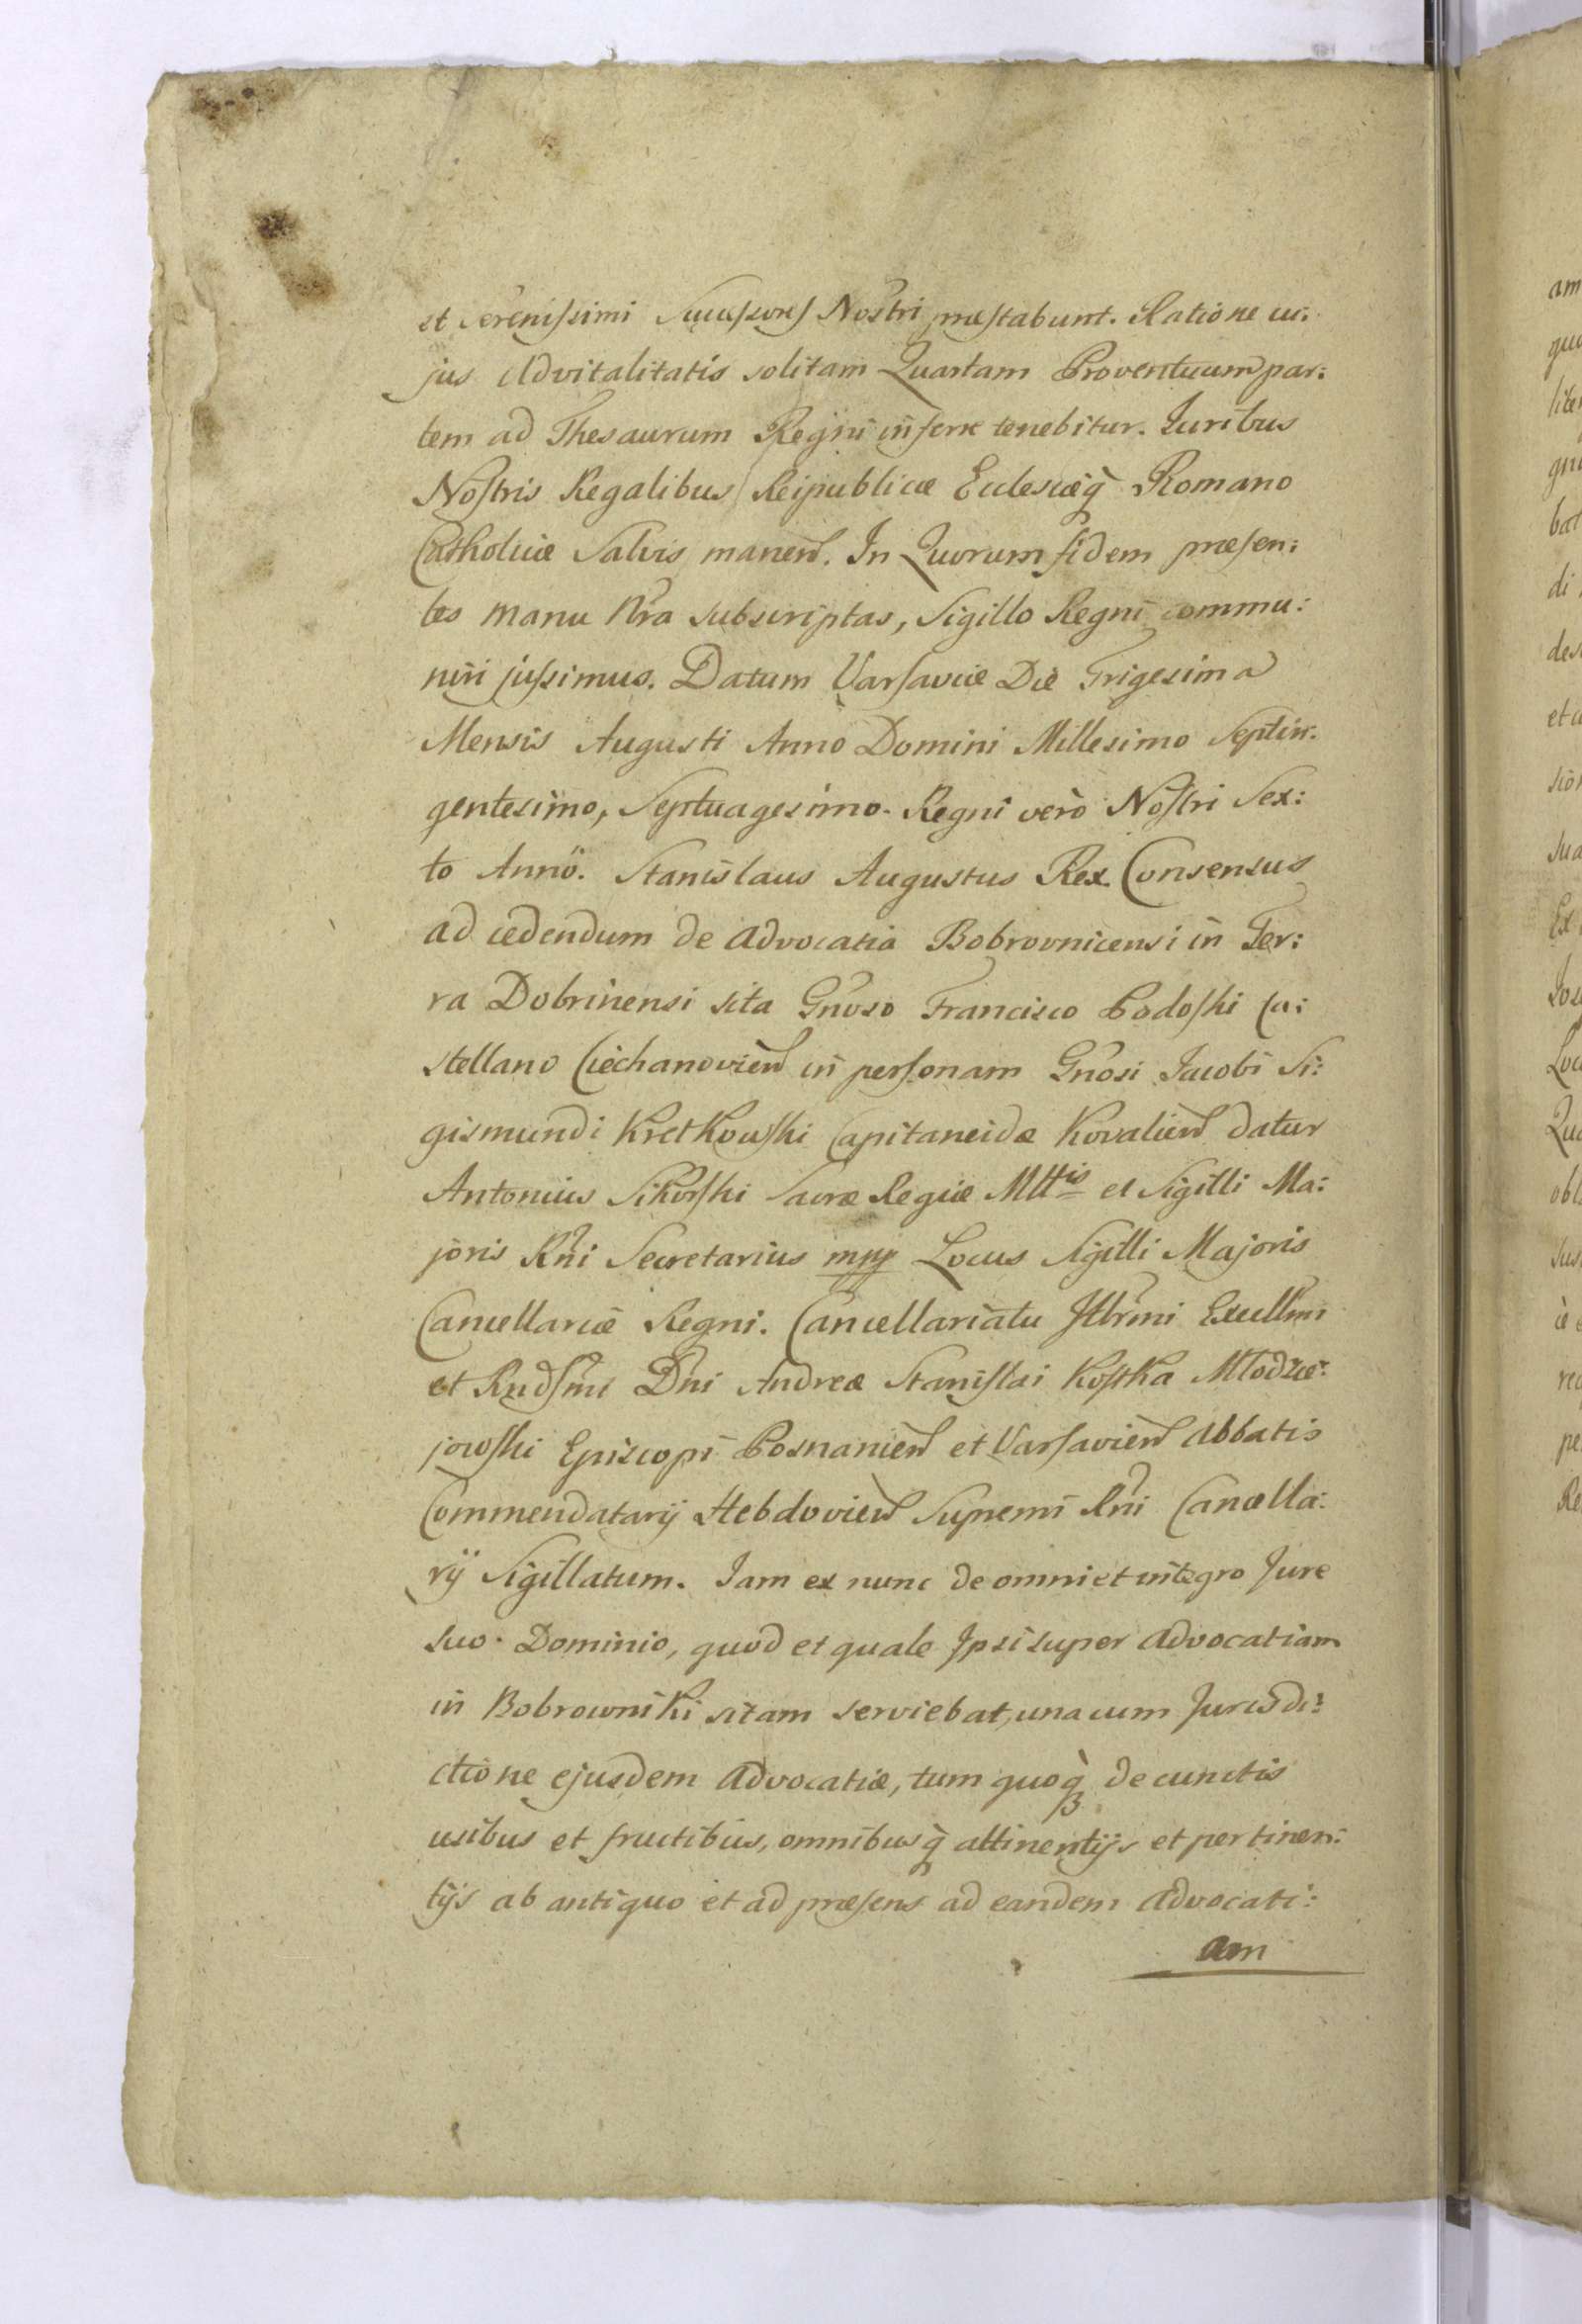 et serenissimi Successores Nostri præstabunt. Ratione cu:
jus Advitalitatis solitam Quartam Proventuum par:
tem ad Thesaurum Regni inferre tenebitur. Juribus
Nostris Regalibus Reipublicæ Ecclesiæq̀ Romano
Catholicæ Salvis manen. In Quorum fidem præsen:
tes manu Nra subscriptas, Sigillo Regni commu:
niri jussimus. Datum Varsaviæ Die Trigesima
Mensis Augusti Anno Domini Millesimo Septin:
gentesimo, Septuagesimo. Regni verò Nostri Sex:
to Anno. Stanislaus Augustus Rex. Consensus
ad cedendum de Advocatia Bobrovnicensi in Ter:
ra Dobrinensi sita Gnoso Francisco Podoski Ca:
stellano Ciechanovien in personam Gnosi Jacobi Si:
gismundi Kretkowski Capitaneidæ Kovalien datur
Antonius Sikorski Sacræ Regiæ Mttis et Sigilli Ma:
joris Rni Secretarius mpp Locus Sigilli Majoris
Cancellariæ Regni. Cancellariatu Jllrmi Excellmi
et Rndsmi Dni Andreæ Stanislai Kostka Młodzie:
jowski Episcopi Posnanien et Varsavien Abbatis
Commendatarij Hebdovien Supremi Rni Cancella:
rij Sigillatum. Jam ex nunc de omni et integro Jure
suo Dominio, quod et quale Jpsi super Advocatiam
in Bobrowniki sitam serviebat, una cum Jurisdi:
ctione ejusdem Advocatiæ, tum quoq̀ de cunctis
usibus et fructibus, omnibusq̀ attinentijs et pertinen:
tijs ab antiquo et ad præsens ad eandem Advocati:
am